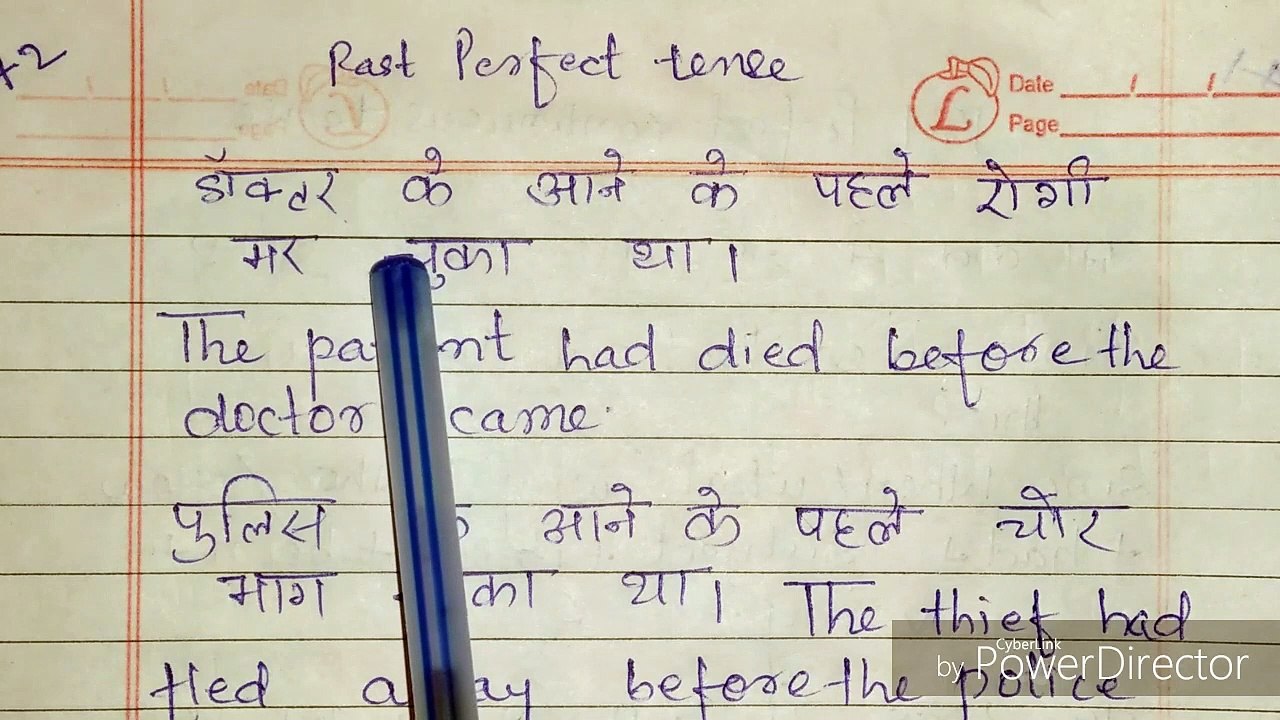 +2
Past Perfect tense
Date
Page
डॉक्टर के आने के पहले रोगी
मर चुका था।
The patient had died before the
doctor came.
पुलिस के आने के पहले चोर
भाग चुका था। The thief had
fled away before the police
CyberLink
by PowerDirector